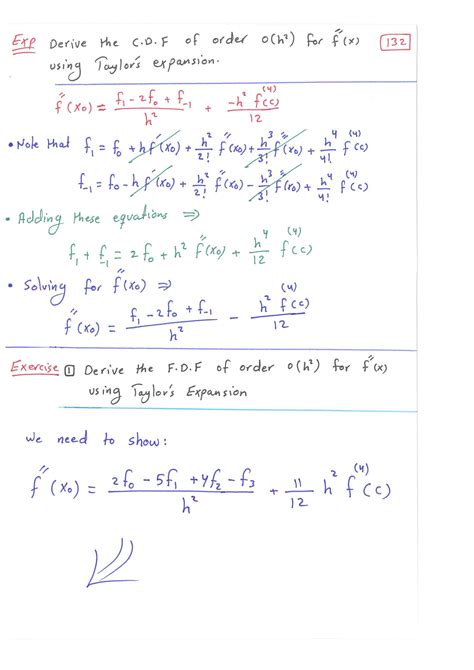 Exp Derive the C.D.F of order O(h²) for f''(x) 132
using Taylor's expansion.
f''(x₀) = (f₁ - 2f₀ + f₋₁)/h² + (-h² f⁽⁴⁾(c))/12
• Note that f₁ = f₀ + hf'(x₀) + h²/2! f''(x₀) + h³/3! f'''(x₀) + h⁴/4! f⁽⁴⁾(c)
f₋₁ = f₀ - hf'(x₀) + h²/2! f''(x₀) - h³/3! f'''(x₀) + h⁴/4! f⁽⁴⁾(c)
• Adding these equations ⇒
f₁ + f₋₁ = 2f₀ + h² f''(x₀) + h⁴/12 f⁽⁴⁾(c)
• Solving for f''(x₀) ⇒
f''(x₀) = (f₁ - 2f₀ + f₋₁)/h² - (h² f⁽⁴⁾(c))/12
Exercise 1 Derive the F.D.F of order O(h²) for f''(x)
using Taylor's Expansion
we need to show:
f''(x₀) = (2f₀ - 5f₁ + 4f₂ - f₃)/h² + 11/12 h² f⁽⁴⁾(c)